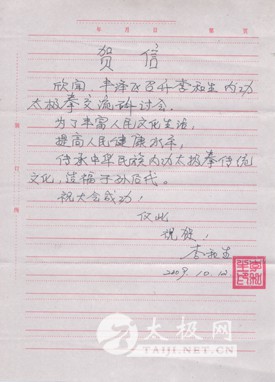 贺信
欣闻丰泽区召开李和生内功
太极拳交流研讨会。
为了丰富人民文化生活,
提高人民健康水平,
传承中华民族内功太极拳传统
文化,造福子孙后代。
祝大会成功!
仅此
祝贺!
李和生
2009.10.12
太极网
TAIJI.NET.CN